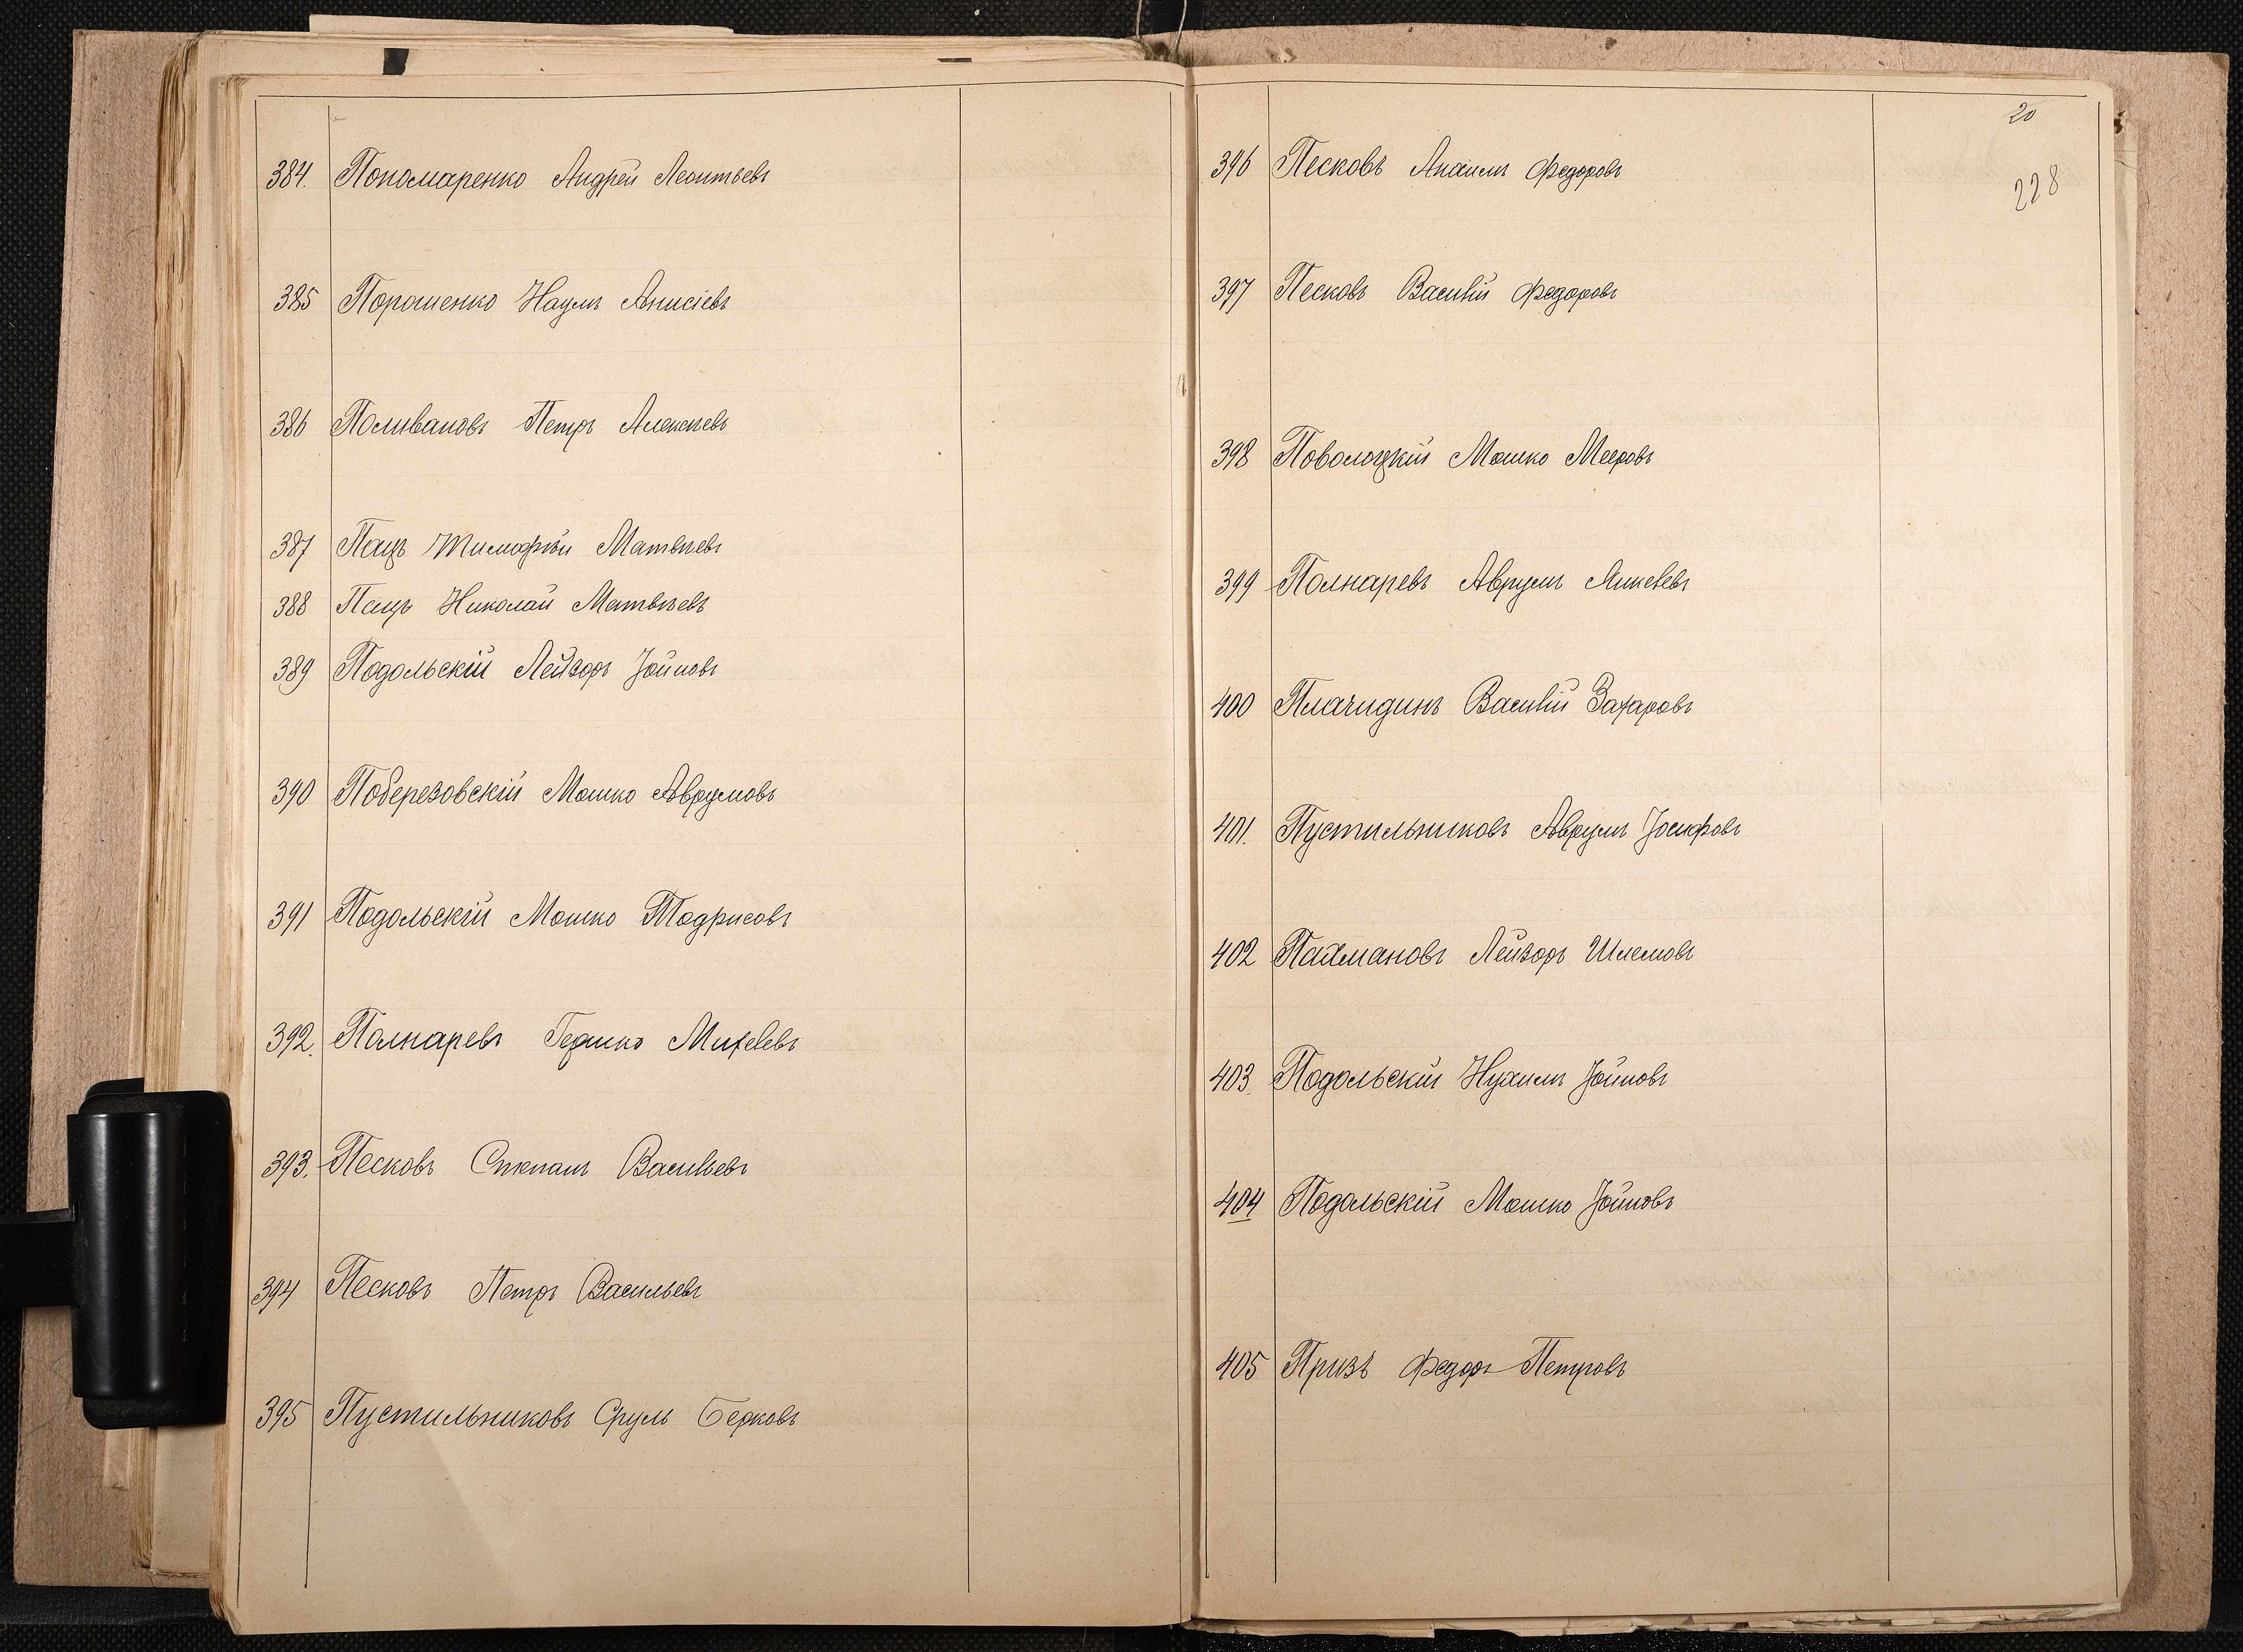 384. Пономаренко Андрей Леонтьевъ
385 Порошенко Наумъ Анисіевъ
386 Поливановъ Петръ Алексѣевъ
387 Пацъ Тимофѣй Матвѣевъ
388 Пацъ Николай Матвѣевъ
389 Подольскій Лейзоръ Іойновъ
390 Поберезовскій Мошко Аврумовъ
391 Подольскій Мошко Тодрисовъ
392. Полнаревъ Гершко Михелевъ
393. Песковъ Степанъ Васильевъ
394 Песковъ Петръ Васильевъ
395 Пустильниковъ Сруль Берковъ
20
228
396 Песковъ Федоровъ
397 Песковъ Василій Федоровъ
398 Поволоцкій Мошко Мееровъ
399 Полнаревъ Аврумъ
400 Плачидинъ Василій Захаровъ
401. Пустильниковъ Аврумъ Іосифовъ
402 Пахмановъ Лейзоръ Шлемовъ
403. Подольскій Нухимъ Іойновъ
404 Подольскій Мошко Іойновъ
405 Призъ Федоръ Петровъ